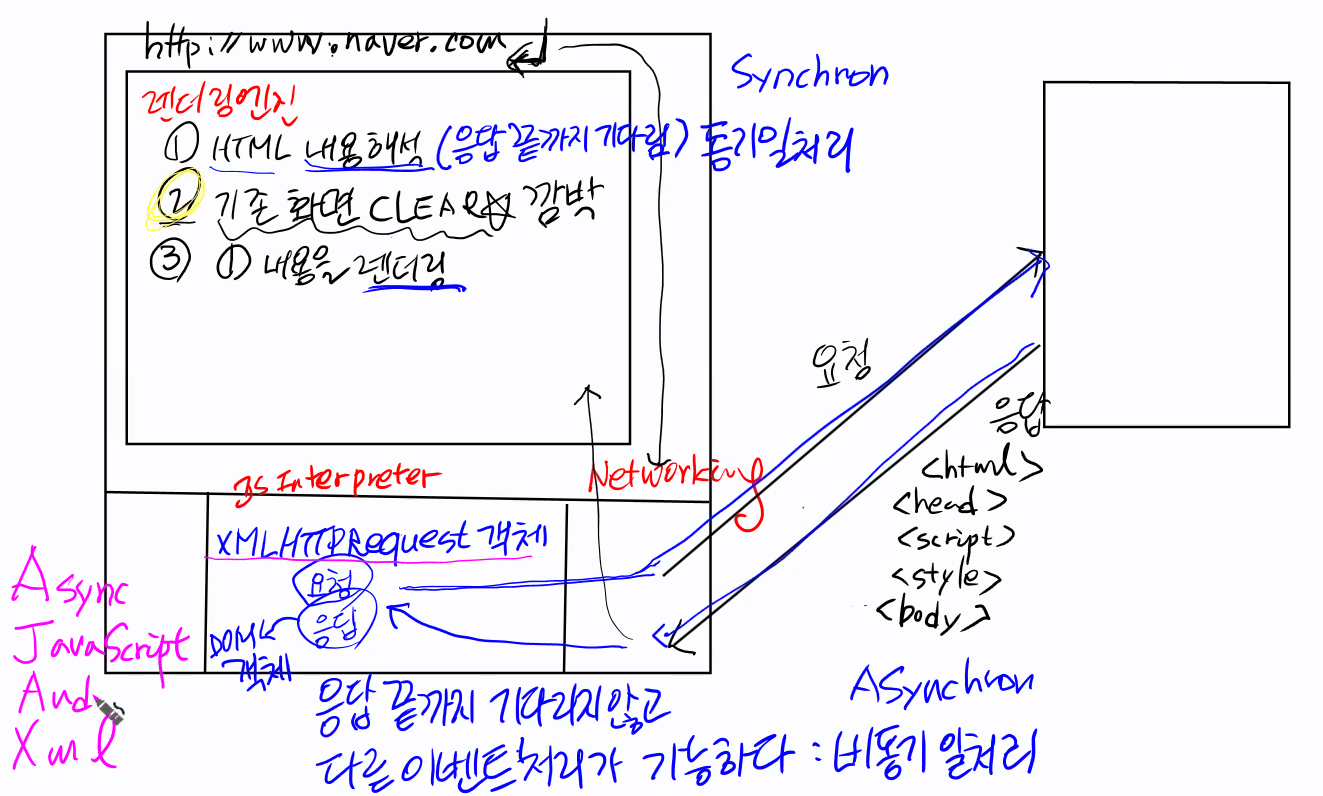 http://www.naver.com
Synchron
렌더링엔진
① HTML 내용해석 (응답 끝까지 기다림) 동기일처리
② 기존 화면 CLEAR☆ 깜박
③ ① 내용을 렌더링
요청
응답
<html>
<head>
<script>
<style>
<body>
JS Interpreter
Networking
XMLHTTPRequest 객체
요청
응답
DOM
객체
Async
JavaScript
And
Xml
ASynchron
응답 끝까지 기다리지않고
다른이벤트처리가 가능하다 : 비동기 일처리